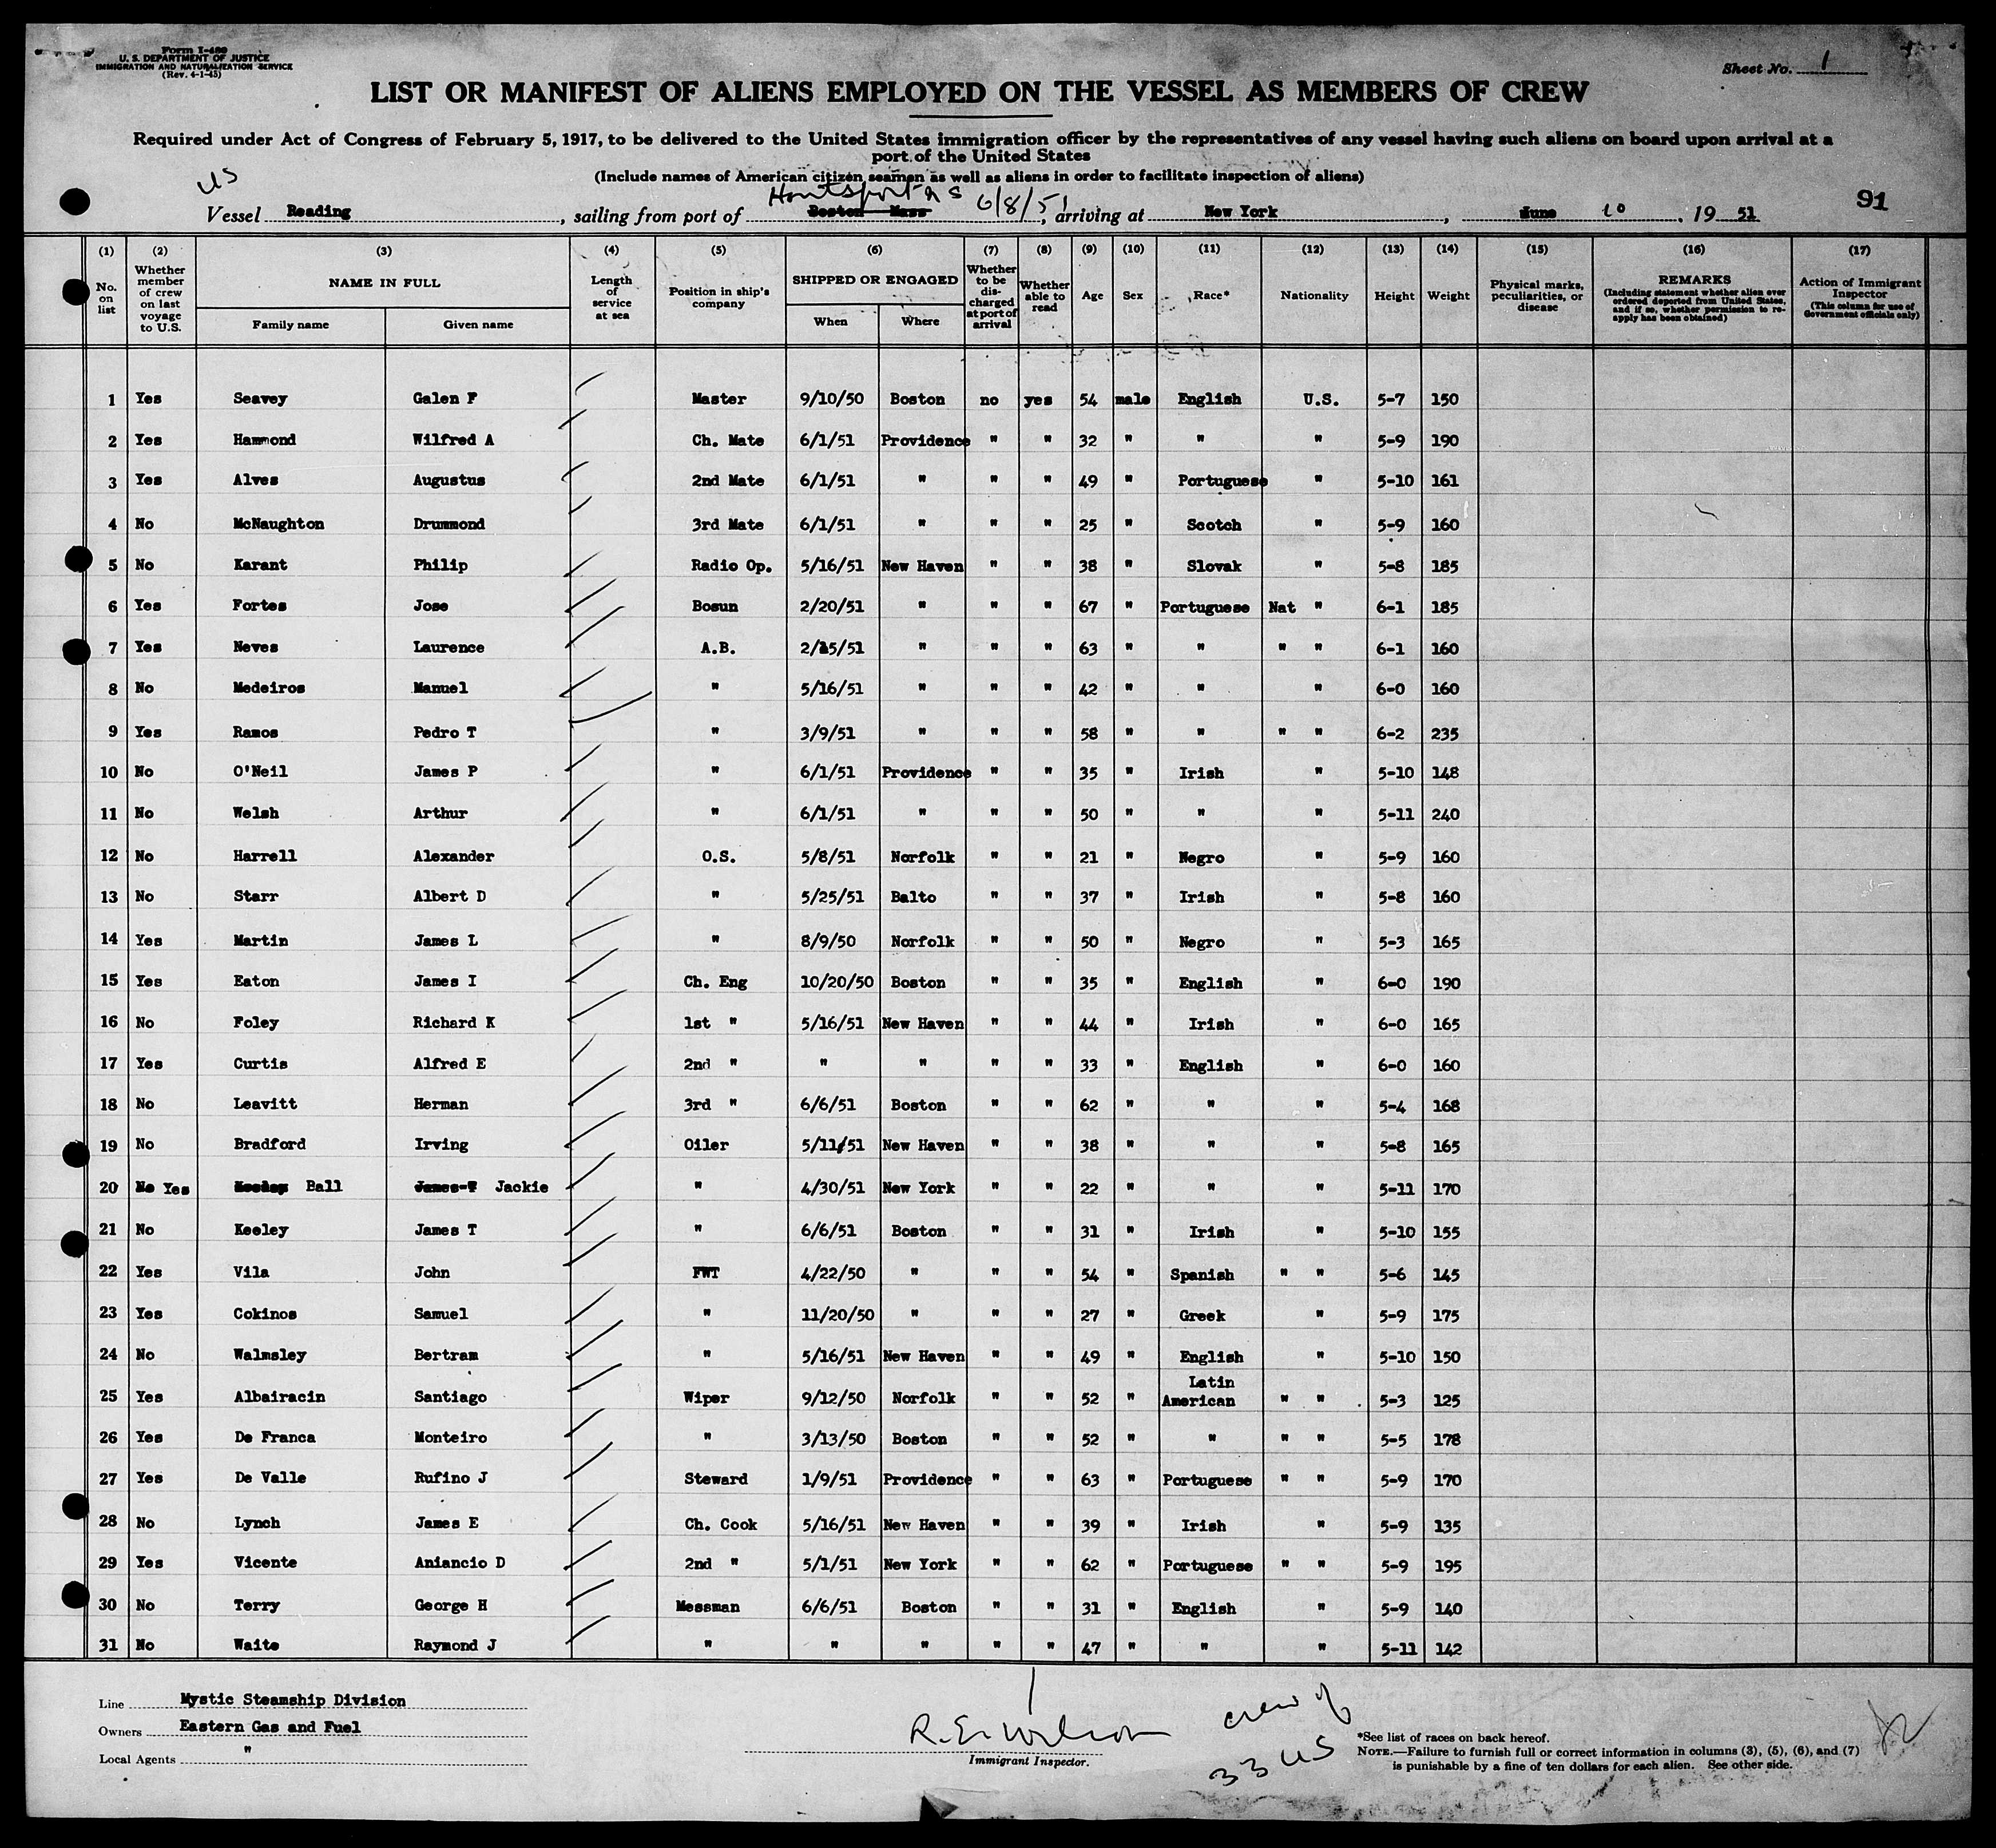 Form I-480
U. S. DEPARTMENT OF JUSTICE
IMMIGRATION AND NATURALIZATION SERVICE
(Rev. 4-1-45)
Sheet No. 1
LIST OR MANIFEST OF ALIENS EMPLOYED ON THE VESSEL AS MEMBERS OF CREW
Required under Act of Congress of February 5, 1917, to be delivered to the United States immigration officer by the representatives of any vessel having such aliens on board upon arrival at a
port of the United States
(Include names of American citizen seamen as well as aliens in order to facilitate inspection of aliens)
US
Hantsport N S 6/8/51
91
Vessel Reading, sailing from port of Boston Mass, arriving at New York, June 10, 19 51
(1) (2) (3) (4) (5) (6) (7) (8) (9) (10) (11) (12) (13) (14) (15) (16) (17)
No. on list Whether member of crew on last voyage to U.S. NAME IN FULL Family name Given name Length of service at sea Position in ship's company SHIPPED OR ENGAGED When Where Whether to be discharged at port of arrival Whether able to read Age Sex Race* Nationality Height Weight Physical marks, peculiarities, or disease REMARKS (Including statement whether alien ever ordered deported from United States, and if so, whether permission to reapply has been obtained) Action of Immigrant Inspector (This column for use of Government officials only)
1 Yes Seavey Galen F Master 9/10/50 Boston no yes 54 male English U.S. 5-7 150
2 Yes Hammond Wilfred A Ch. Mate 6/1/51 Providence " " 32 " " " 5-9 190
3 Yes Alves Augustus 2nd Mate 6/1/51 " " " 49 " Portuguese " 5-10 161
4 No McNaughton Drummond 3rd Mate 6/1/51 " " " 25 " Scotch " 5-9 160
5 No Karant Philip Radio Op. 5/16/51 New Haven " " 38 " Slovak " 5-8 185
6 Yes Fortes Jose Bosun 2/20/51 " " " 67 " Portuguese Nat " 6-1 185
7 Yes Neves Laurence A.B. 2/25/51 " " " 63 " " " " 6-1 160
8 No Medeiros Manuel " 5/16/51 " " " 42 " " " 6-0 160
9 Yes Ramos Pedro T " 3/9/51 " " " 58 " " " " 6-2 235
10 No O'Neil James P " 6/1/51 Providence " " 35 " Irish " 5-10 148
11 No Welsh Arthur " 6/1/51 " " " 50 " " " 5-11 240
12 No Harrell Alexander O.S. 5/8/51 Norfolk " " 21 " Negro " 5-9 160
13 No Starr Albert D " 5/25/51 Balto " " 37 " Irish " 5-8 160
14 Yes Martin James L " 8/9/50 Norfolk " " 50 " Negro " 5-3 165
15 Yes Eaton James I Ch. Eng 10/20/50 Boston " " 35 " English " 6-0 190
16 No Foley Richard K 1st " 5/16/51 New Haven " " 44 " Irish " 6-0 165
17 Yes Curtis Alfred E 2nd " " " " " 33 " English " 6-0 160
18 No Leavitt Herman 3rd " 6/6/51 Boston " " 62 " " " 5-4 168
19 No Bradford Irving Oiler 5/11/51 New Haven " " 38 " " " 5-8 165
20 No Yes Keeley Ball James T Jackie " 4/30/51 New York " " 22 " " " 5-11 170
21 No Keeley James T " 6/6/51 Boston " " 31 " Irish " 5-10 155
22 Yes Vila John FWT 4/22/50 " " " 54 " Spanish " " 5-6 145
23 Yes Cokinos Samuel " 11/20/50 " " " 27 " Greek " 5-9 175
24 No Walmsley Bertram " 5/16/51 New Haven " " 49 " English " 5-10 150
25 Yes Albairacin Santiago Wiper 9/12/50 Norfolk " " 52 " Latin American " " 5-3 125
26 Yes De Franca Monteiro " 3/13/50 Boston " " 52 " " " " 5-5 178
27 Yes De Valle Rufino J Steward 1/9/51 Providence " " 63 " Portuguese " " 5-9 170
28 No Lynch James E Ch. Cook 5/16/51 New Haven " " 39 " Irish " 5-9 135
29 Yes Vicente Aniancio D 2nd " 5/1/51 New York " " 62 " Portuguese " " 5-9 195
30 No Terry George H Messman 6/6/51 Boston " " 31 " English " 5-9 140
31 No Waite Raymond J " " " " " 47 " " " 5-11 142
Line Mystic Steamship Division
Owners Eastern Gas and Fuel
Local Agents "
R. E. Wilson
Immigrant Inspector.
crew of
33 US
*See list of races on back hereof.
NOTE.—Failure to furnish full or correct information in columns (3), (5), (6), and (7)
is punishable by a fine of ten dollars for each alien. See other side.